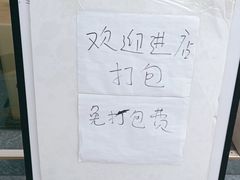 欢迎进店
打包
免打包费